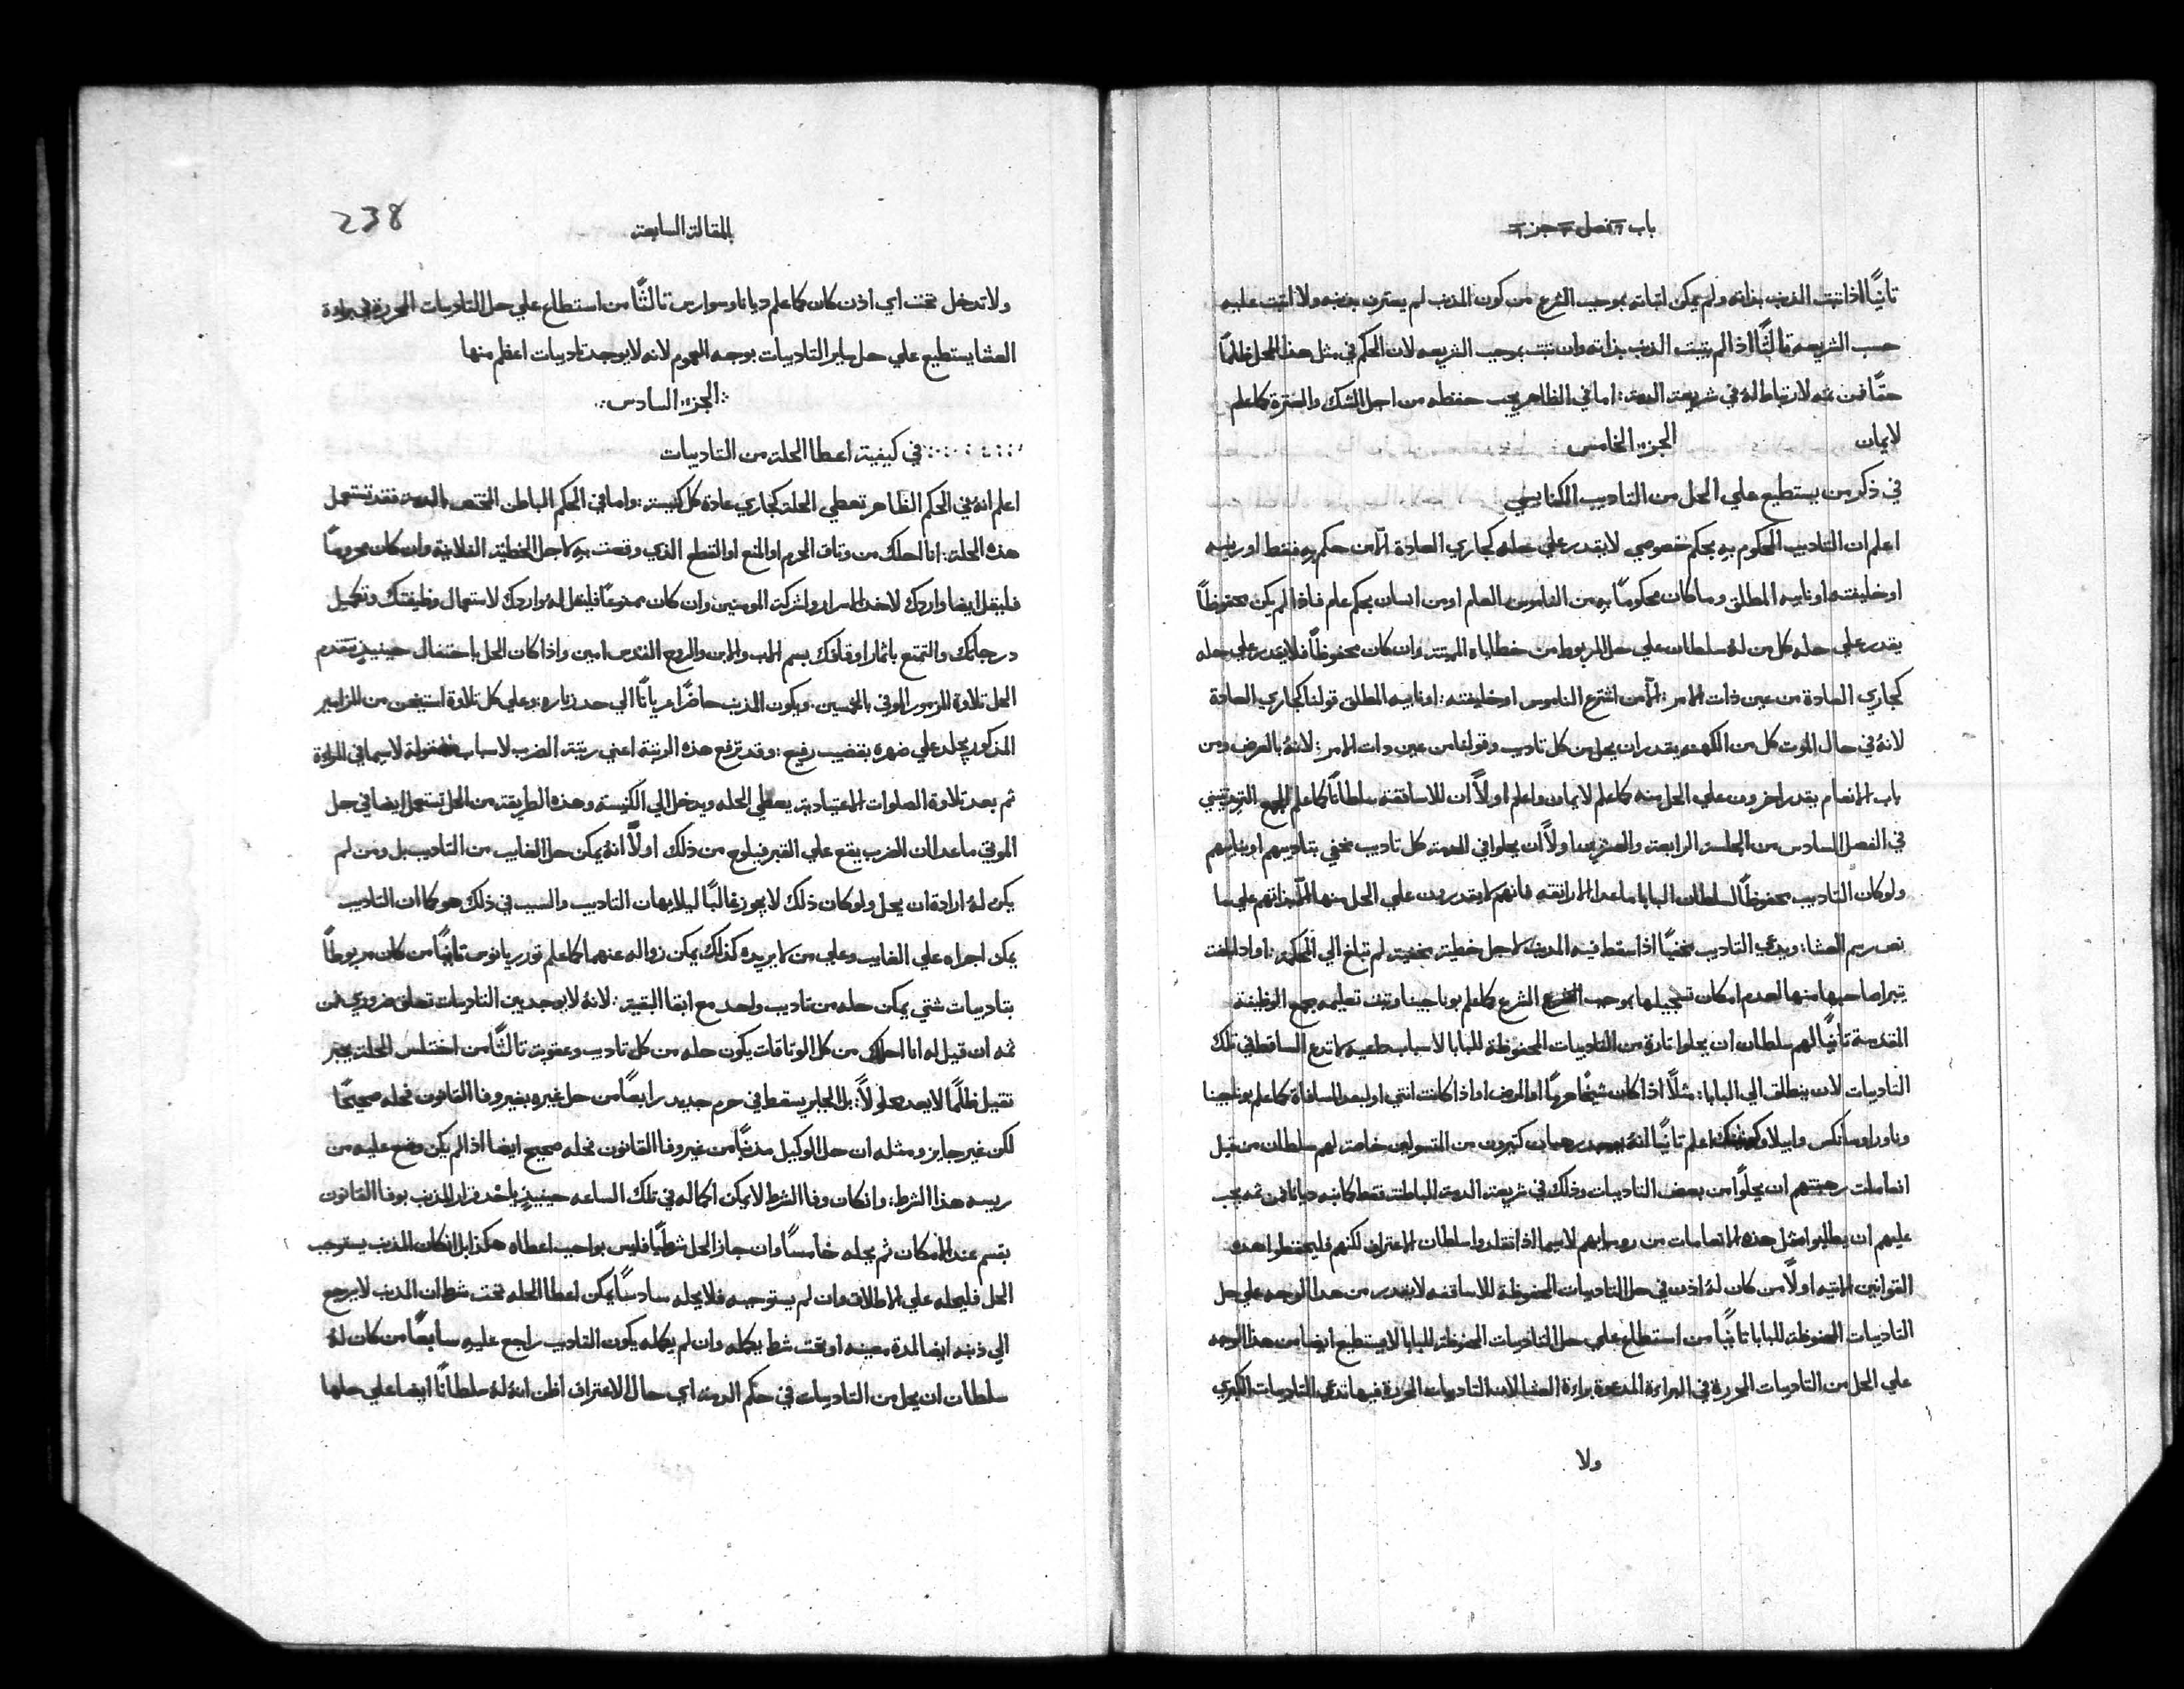 باب فصل جز
ثانيًا اذا ثبت الذنب بذاته ولم يمكن اثباته بموجب الشرع من كون المذنب لم يعترف بذنبه ولا اثبت عليه
حسب الشريعه ثالثًا اذا لم يثبت الذنب بذاته وان ثبت بموجب الشريعه لان الحكم في مثل هذا المحل ظلمًا
حقًا فمن ثمه لا ارتباط له في شريعة الذمة: اما في الظاهر يجب حفظه من اجل الشك والسترة كما علم
لايمان الجزء الخامس
في ذكر من يستطيع علي الحل من التاديب الكنايسي
اعلم ان التاديب المحكوم به بحكم خصوصي لا يقدر علي حله كجاري العادة الّا من حكم به فقط او ريسه
او خليفته او نايبه المطلق وما كان محكومًا به من الناموس العام او من انسان بحكم عام فاذا لم يكن محفوظًا
يقدر علي حله كل من لهُ سلطان علي حل المربوط من خطاياه المميتة وان كان محفوظًا فلا يقدر علي حله
كجاري العادة من عين ذات الامر: الّا من اشترع الناموس او خليفته: او نايبه المطلق قولنا كجاري العادة
لانهُ في حال الموت كل من الكهنه يقدر ان يحل من كل تاديب وقولنا من عين ذات الامر: لانهُ بالعرض ومن
باب الانعام يقدر اخرون علي الحل منه كما علم لايمان واعلم اولًا ان للاساقفة سلطانًا كما علم المجمع التريدنتيني
في الفصل السادس من الجلسة الرابعة والعشرين اولًا ان يحلوا في الذمة كل تاديب مخفي بتاديبهم او بنايبهم
ولو كان التاديب محفوظًا لسلطان البابا ما عدا الارانقه فانهم لا يقدرون علي الحل منها الّا بذاتهم علي ما
نص رسم العشا: ويدعي التاديب مخفيًا اذا سقط فيه المذنب لاجل خطية مخفية لم تبلغ الي المحكمة: او اذا بلغت
يتبرا صاحبها منها لعدم امكان تسجيلها بموجب الشرع كما علم بوناجينا وثبت تعليمه مجمع الوظيفة
المقدسة ثانيًا لهم سلطان ان يحلوا تارة من التاديبات المحفوظة للبابا لاسباب داعية لا تدع الساقط في تلك
التاديبات لان ينطلق الي البابا: مثلًا اذا كان شيخًا هرمًا او المرض او اذا كانت انثي او لبعد المسافاة كما علم بوناجينا
وناورا وسانكس وابيلا وكونينك اعلم ثانيًا انهُ يوجد رهبان كثيرون من المتسولين خاصة لهم سلطان من قبل
انعامات رهبنتهم ان يحلّوا من بعض التاديبات وذلك في شريعة الذمة الباطنة فقط كانبه ديانا فمن ثمه يجب
عليهم ان يطالبوا مثل هذه الانعامات من روسايهم لاسيما اذا تقلدوا سلطان الاعتراف لكنهم فليحفظوا هذه
القوانين الاتيه اولًا من كان لهُ اذن في حل التاديبات المحفوظة للاساقفه لا يقدر من هذا الوجه علي حل
التاديبات المحفوظة للبابا ثانيًا من استطاع علي حل التاديبات المحفوظة للبابا لا يستطيع ايضا من هذا الوجه
علي الحل من التاديبات المحررة في البراءة المدعوة براءة العشا لان التاديبات المحررة فيها تدعي التاديبات الكبري
ولا
المقالة السابعة
238
ولا تدخل تحت اي اذن كان كما علم ديانا وسوارس ثالثًا من استطاع علي حل التاديبات المحررة في براءة
العشا يستطيع علي حل ساير التاديبات بوجه العموم لانه لا يوجد تاديبات اعظم منها
الجزء السادس
في كيفية اعطا الحلة من التاديبات
اعلم انهُ في الحكم الظاهر تعطي الحلة كجاري عادة كل كنيسة: واما في الحكم الباطن المختص بالذمة فقد تستعمل
هذه الحلة: انا احلك من وثاق الحرم او المنع او القطع الذي وقعت به لاجل الخطية الفلانية وان كان محرومًا
فليقل ايضا واردك لاخذ الاسرار ولشركة المومنين وان كان ممنوعًا فليقل له واردك لاستعمال وظيفتك وتكميل
درجاتك والتمتع باثمار اوقافك بسم الاب والابن والروح القدس امين واذا كان الحل باحتفال حينيذٍ تتقدم
الحل تلاوة المزمور الموفي بالخمسين: ويكون المذنب حاضرًا عريانًا الي حد زناره: وعلي كل تلاوة استيخن من المزامير
المذكور يجلد علي ضهره بقضيب رفيع: وقد ترفع هذه الرتبة اعني رتبة الضرب لاسباب مقبولة لاسيما في المراة
ثم بعد تلاوة الصلوات الاعتيادية يعطي الحله ويدخل الي الكنيسة وهذه الطريقة من الحل تستعمل ايضا في حل
الموتي ما عدا ان الضرب يقع علي القبر فيلوح من ذلك اولًا انهُ يمكن حل الغايب من التاديب بل ومن لم
يكن لهُ ارادة ان يحل ولو كان ذلك لا يجوز غالبًا ليلا يهان التاديب والسبب في ذلك هو كما ان التاديب
يمكن اجراه علي الغايب وعلي من لا يريده كذلك يمكن زواله عنهما كما علم توريانوس ثانيًا من كان مربوطًا
بتاديبات شتي يمكن حله من تاديب واحد مع ابقا البقية: لانهُ لا يوجد بين التاديبات تعلق ضروري فمن
ثمه ان قيل له انا احلك من كل الوثاقات يكون حله من كل تاديب وعقوبة ثالثًا من اختلس الحلة بجبر
ثقيل ظلمًا لا يعد محلولًا: بل الجابر يسقط في حرم جديد رابعًا من حل غيره بغير وفا القانون فحله صحيحًا
لكن غير جايز ومثله ان حل الوكيل مذنبًا من غير وفا القانون فحله صحيح ايضا اذا لم يكن وضع عليه من
ريسه هذا الشرط: وان كان وفا الشرط لا يمكن اكماله في تلك الساعه حينيذٍ ياخذ قرار المذنب بوفا القانون
بقسم عند الامكان ثم يحله خامسًا وان جاز الحل شرطيًا فليس بواجب اعطاه هكذا بل ان كان المذنب يستوجب
الحل فليحله علي الاطلاق وان لم يستوجبه فلا يحله سادسًا يمكن اعطا الحله تحت شرط ان المذنب لا يرجع
الي ذنبه ايضا لمدة معينه او تحت شرط يكمله وان لم يكمله يكون التاديب راجع عليه سابعًا من كان لهُ
سلطان ان يحل من التاديبات في حكم الذمه اي حال الاعتراف اظن انهُ لهُ سلطانًا ايضا علي حلها